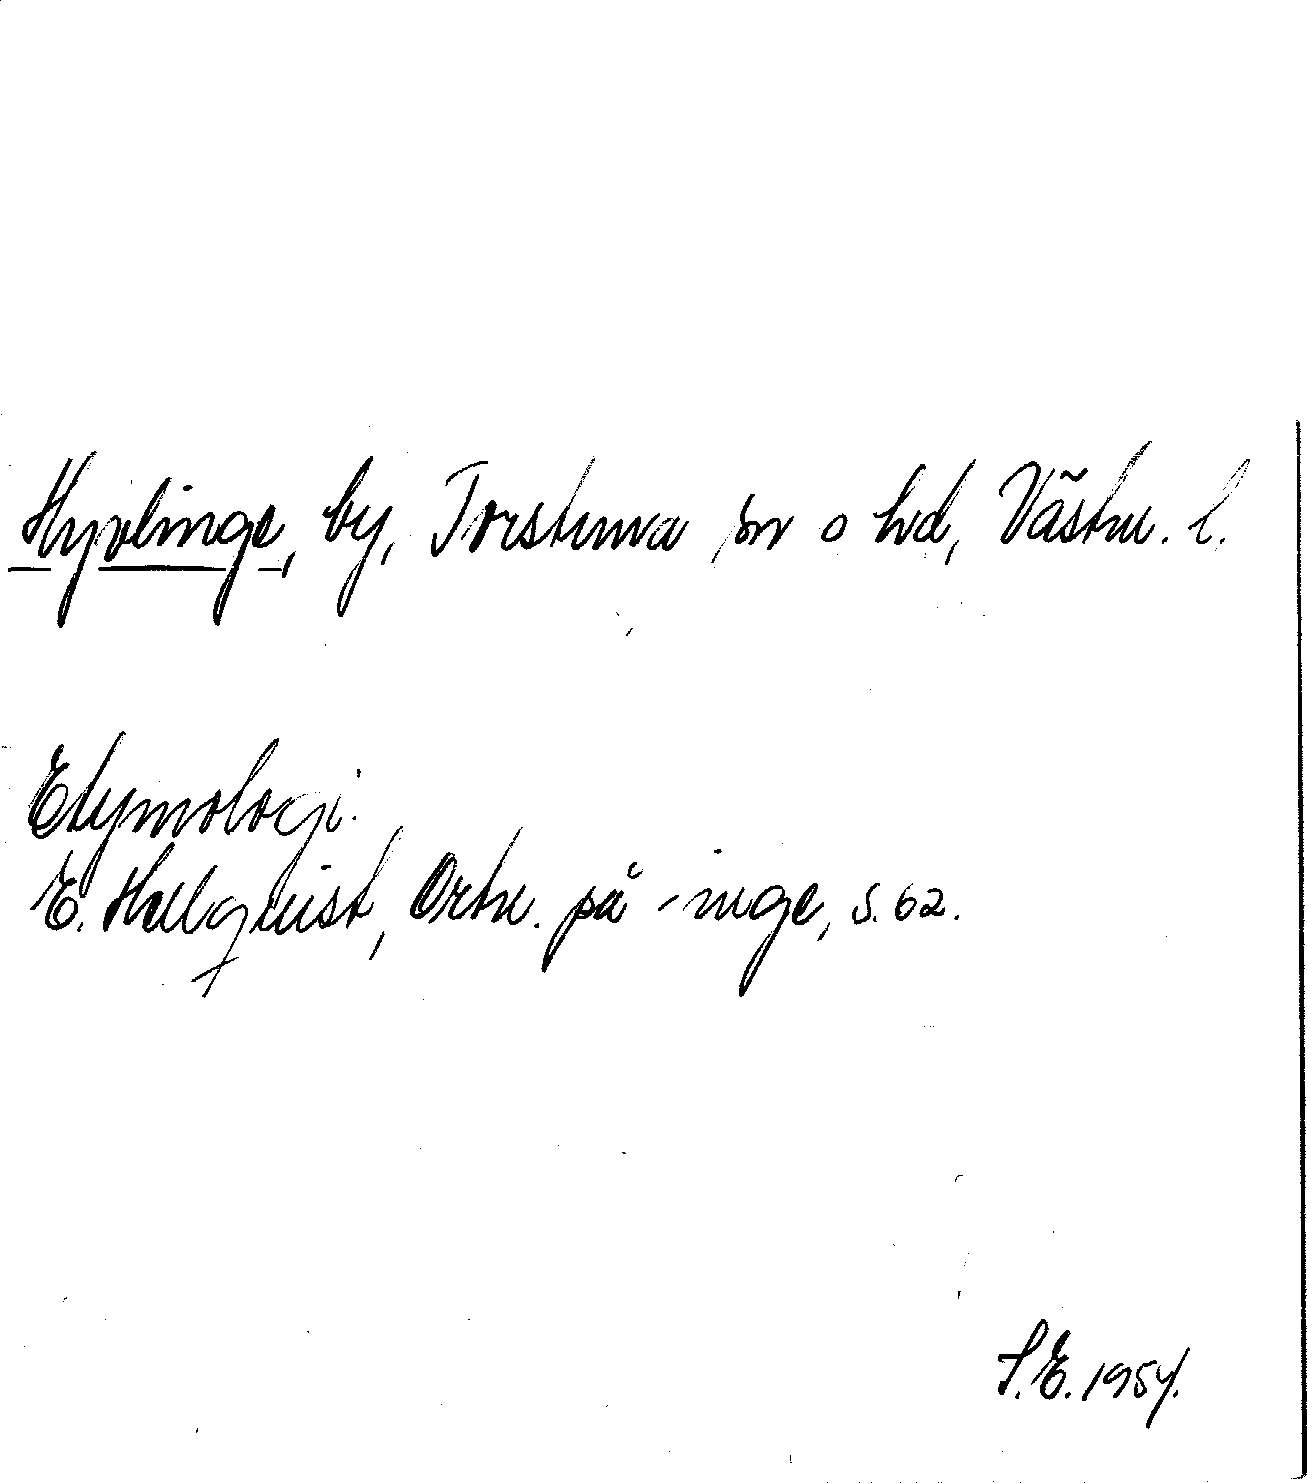 Hyvlinge, by, Torstuna sn o hd, Västm. l.
Etymologi.
E. Hellquist, Ortn. på -inge, s. 62.
S.E. 1954.